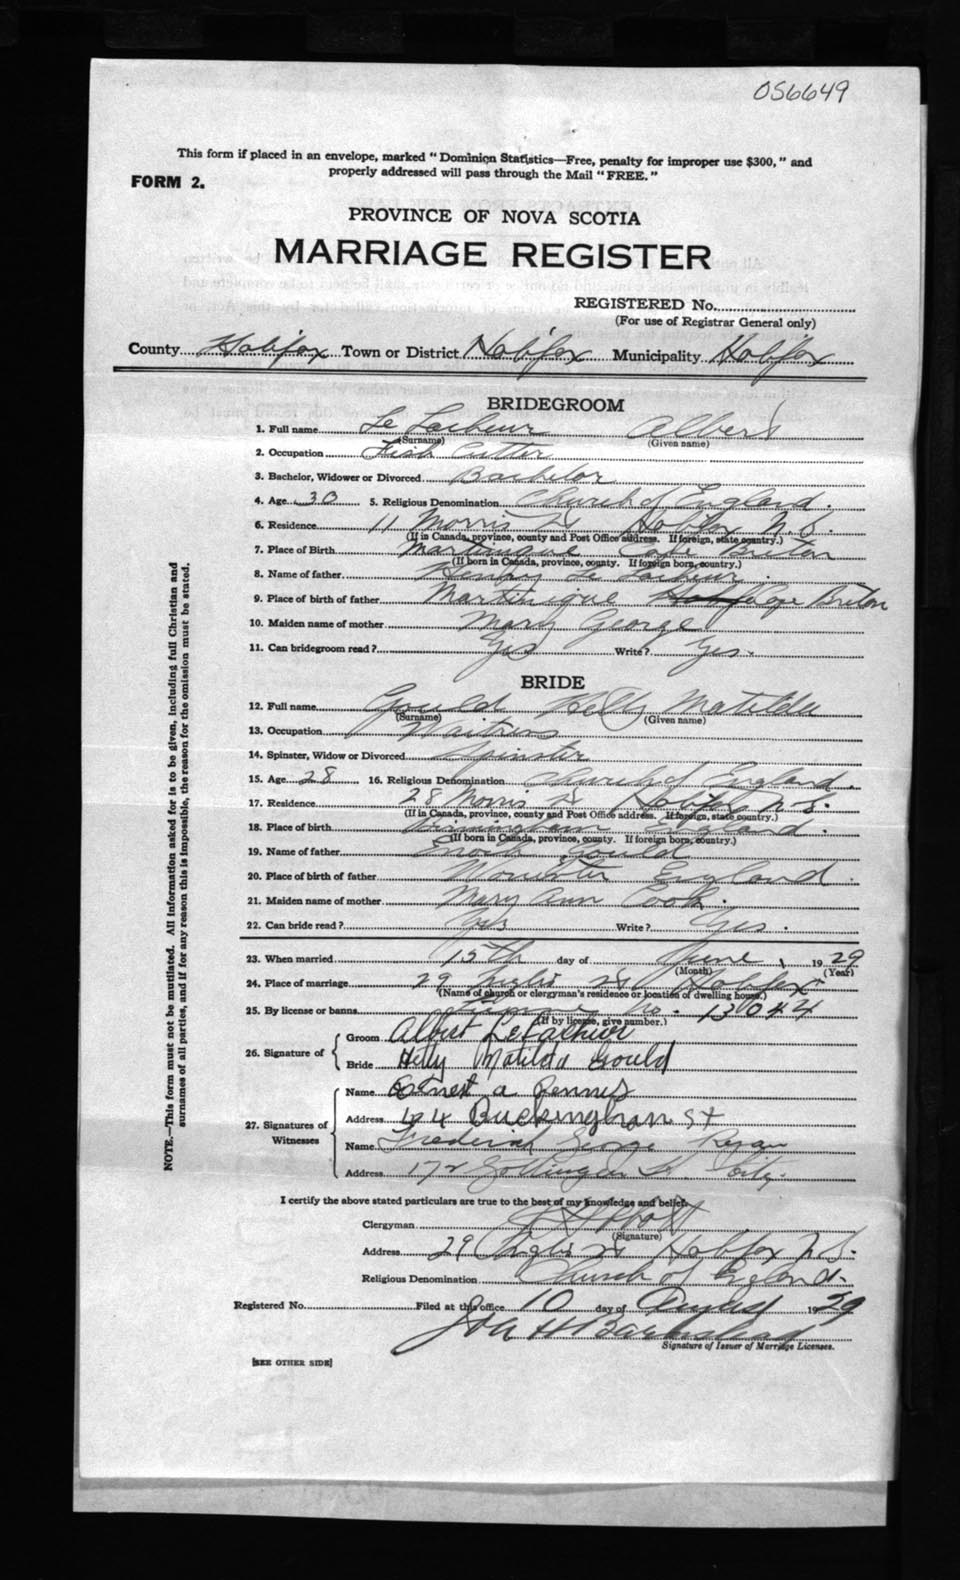 OS6649
This form if placed in an envelope, marked "Dominion Statistics—Free, penalty for improper use $300," and
properly addressed will pass through the Mail "FREE."
FORM 2.
PROVINCE OF NOVA SCOTIA
MARRIAGE REGISTER
REGISTERED No.
(For use of Registrar General only)
County Halifax Town or District Halifax Municipality Halifax
BRIDEGROOM
1. Full name Albert
(Surname) (Given name)
2. Occupation Fish Cutter
3. Bachelor, Widower or Divorced Bachelor
4. Age 30 5. Religious Denomination Church of England.
6. Residence 11 Morris St Halifax N.S.
(If in Canada, province, county and Post Office address. If foreign, state country.)
7. Place of Birth Martinique Cape Breton
(If born in Canada, province, county. If foreign born, country.)
8. Name of father Henry
9. Place of birth of father Martinique Cape Breton
10. Maiden name of mother Mary George
11. Can bridegroom read? Yes Write? Yes.
BRIDE
12. Full name Gould Hetty Matilda
(Surname) (Given name)
13. Occupation Waitress
14. Spinster, Widow or Divorced Spinster
15. Age 28 16. Religious Denomination Church of England.
17. Residence 28 Morris St Halifax N.S.
(If in Canada, province, county and Post Office address. If foreign, state country.)
18. Place of birth Birmingham England.
(If born in Canada, province, county. If foreign born, country.)
19. Name of father Enoch Gould
20. Place of birth of father England.
21. Maiden name of mother Mary Ann Cook.
22. Can bride read? Yes Write? Yes.
23. When married 15th day of June, 1929
(Month) (Year)
24. Place of marriage 29 Inglis St Halifax
(Name of church or clergyman's residence or location of dwelling house.)
25. By license or banns License No. 13044
(If by license, give number.)
26. Signature of
Groom Albert
Bride Hetty Matilda Gould
27. Signatures of Witnesses
Name Ernest a
Address 174 Buckingham St
Name Frederick George Ryan
Address 172 Gottingen St. City.
I certify the above stated particulars are true to the best of my knowledge and belief.
Clergyman
(Signature)
Address 29 Inglis St Halifax N.S.
Religious Denomination Church of England.
Registered No. Filed at this office 10 day of August 1929
Signature of Issuer of Marriage Licenses.
[SEE OTHER SIDE]
NOTE.—This form must not be mutilated. All information asked for is to be given, including full Christian and
surnames of all parties, and if for any reason this is impossible, the reason for the omission must be stated.